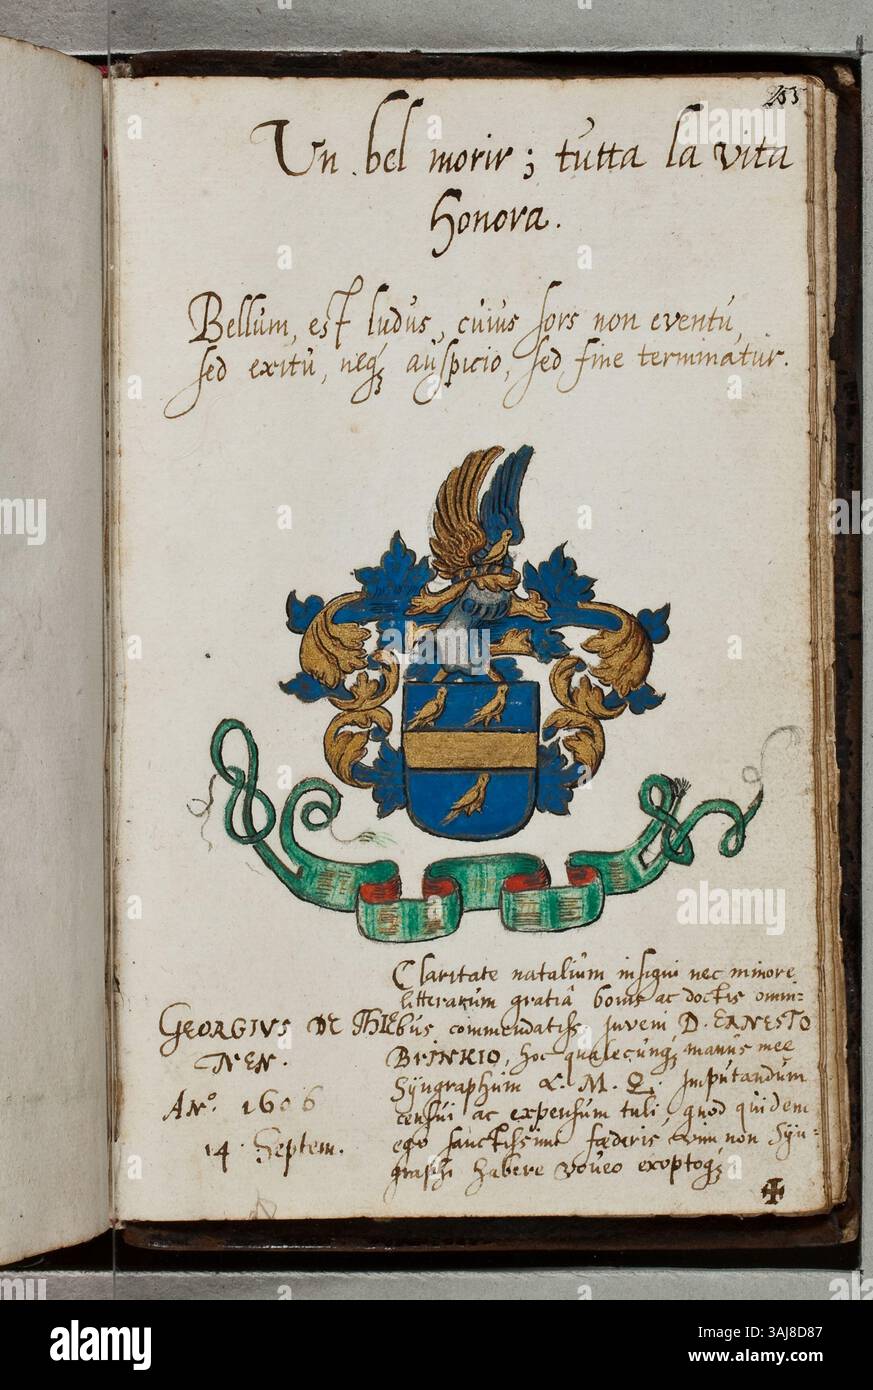 255
Un bel morir; tutta la vita
honora.
Bellum, est ludus, cuius sors non eventu,
sed exitu, neqꝫ auspicio, sed fine terminatur.
Claritate natalium insigni nec minore
litterarum gratia bonis ac doctis omni-
bus commendatiss. Juveni D. ERNESTO
BRINKIO, hoc qualecunqꝫ manus mee
Syngraphum L. M. Q. Imputandum
censui ac expensum tuli, quod quidem
ego sanctissimi fœderis vim non Syn-
graphi habere voveo exoptoqꝫ
GEORGIVS DE THIE
NEN.
ANº. 1606
14. Septem.
alamy
Image ID: 2AJ8D87
www.alamy.com